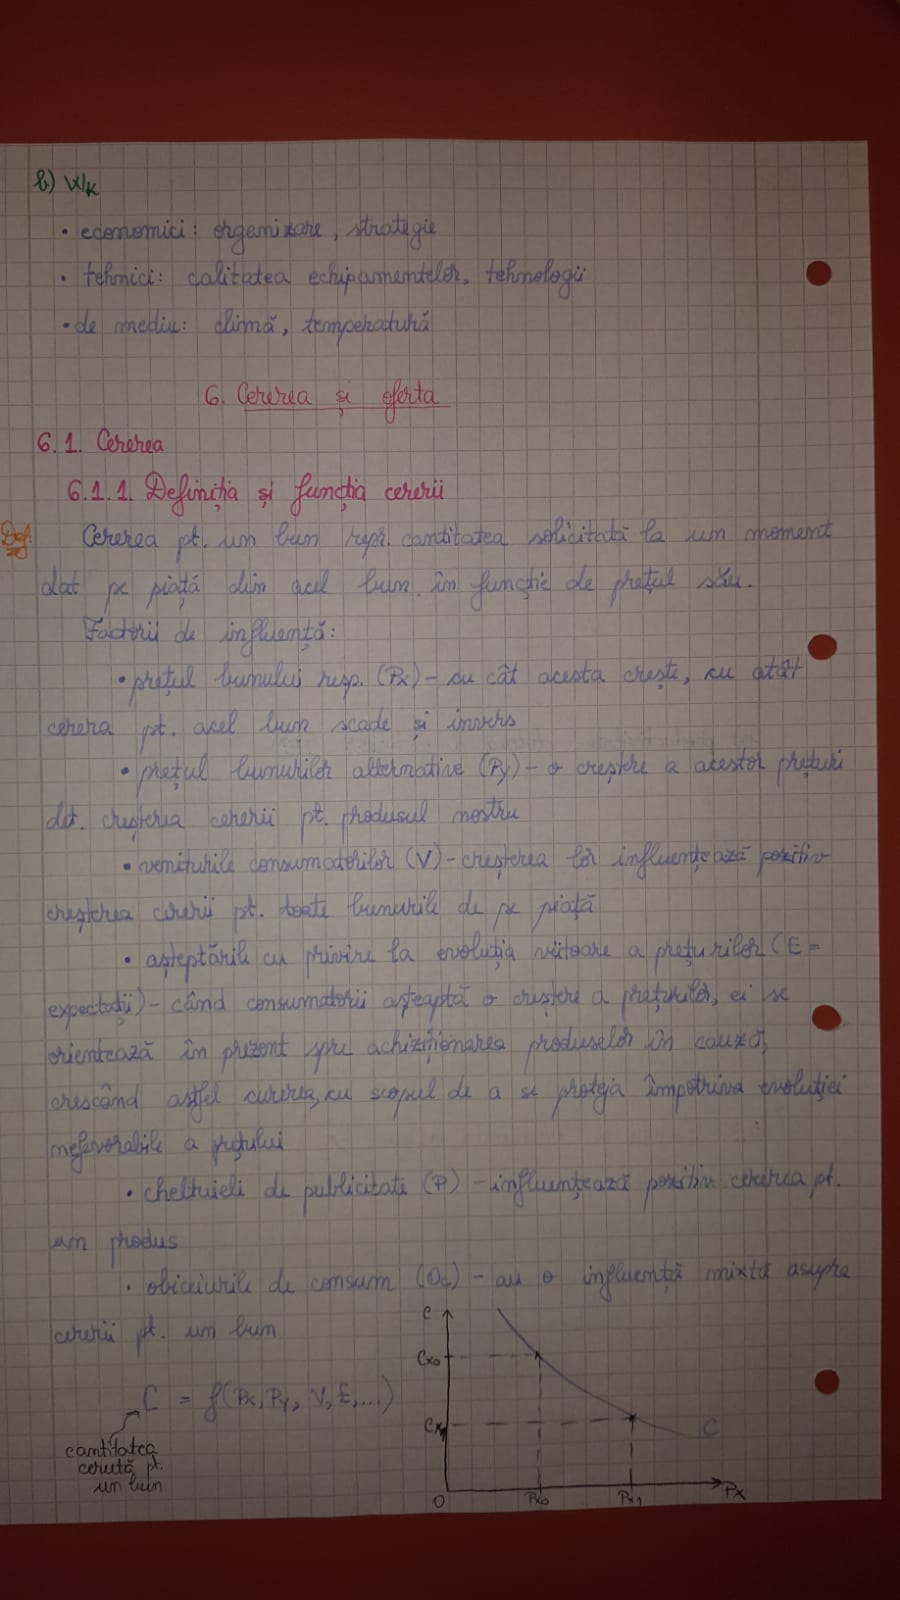 b) W/k
• economici: organizare, strategie
• tehnici: calitatea echipamentelor, tehnologii
• de mediu: climă, temperatură
6. Cererea și oferta
6.1. Cererea
6.1.1. Definiția și funcția cererii
Cererea pt. un bun repr. cantitatea solicitată la un moment
dat pe piață din acel bun în funcție de prețul său.
Factorii de influență:
• prețul bunului resp. (Px) - cu cât acesta crește, cu atât
cererea pt. acel bun scade și invers
• prețul bunurilor alternative (Py) - o creștere a acestor prețuri
det. creșterea cererii pt. produsul nostru
• veniturile consumatorilor (V) - creșterea lor influențează pozitiv
creșterea cererii pt. toate bunurile de pe piață
• așteptările cu privire la evoluția viitoare a prețurilor (E =
expectații) - când consumatorii așteaptă o creștere a prețurilor, ei se
orientează în prezent spre achiziționarea produselor în cauză,
crescând astfel cererea, cu scopul de a se proteja împotriva evoluției
nefavorabile a prețului
• cheltuieli de publicitate (P) - influențează pozitiv cererea pt.
un produs
• obiceiurile de consum - au o influență mixtă asupra
cererii pt. un bun
C = f(Px, Py, V, E, ...)
cantitatea
cerută pt.
un bun
C
Cx0
Cx1
O
Px0
Px1
Px
C